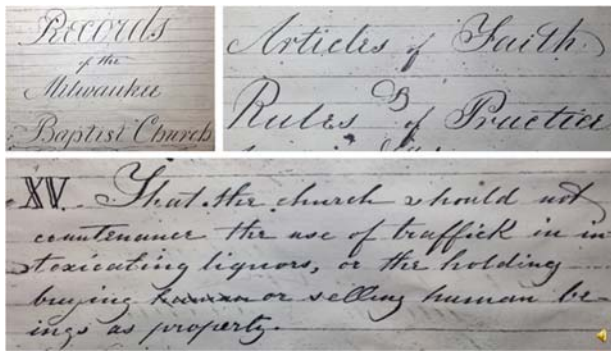 Records
of the
Milwaukee
Baptist Church
Articles of Faith
Rules of Practice
XV. That the church should not
countenance the use of traffick in in
toxicating liquors, or the holding
buying or selling human be-
ings as property.